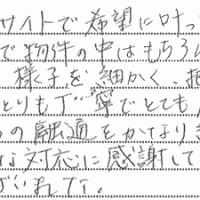 サイトで希望に叶っ
で物件の中はもちろん
様子を細かく、把
とりも丁寧でとても
の融通をかなりき
な対応に感謝して